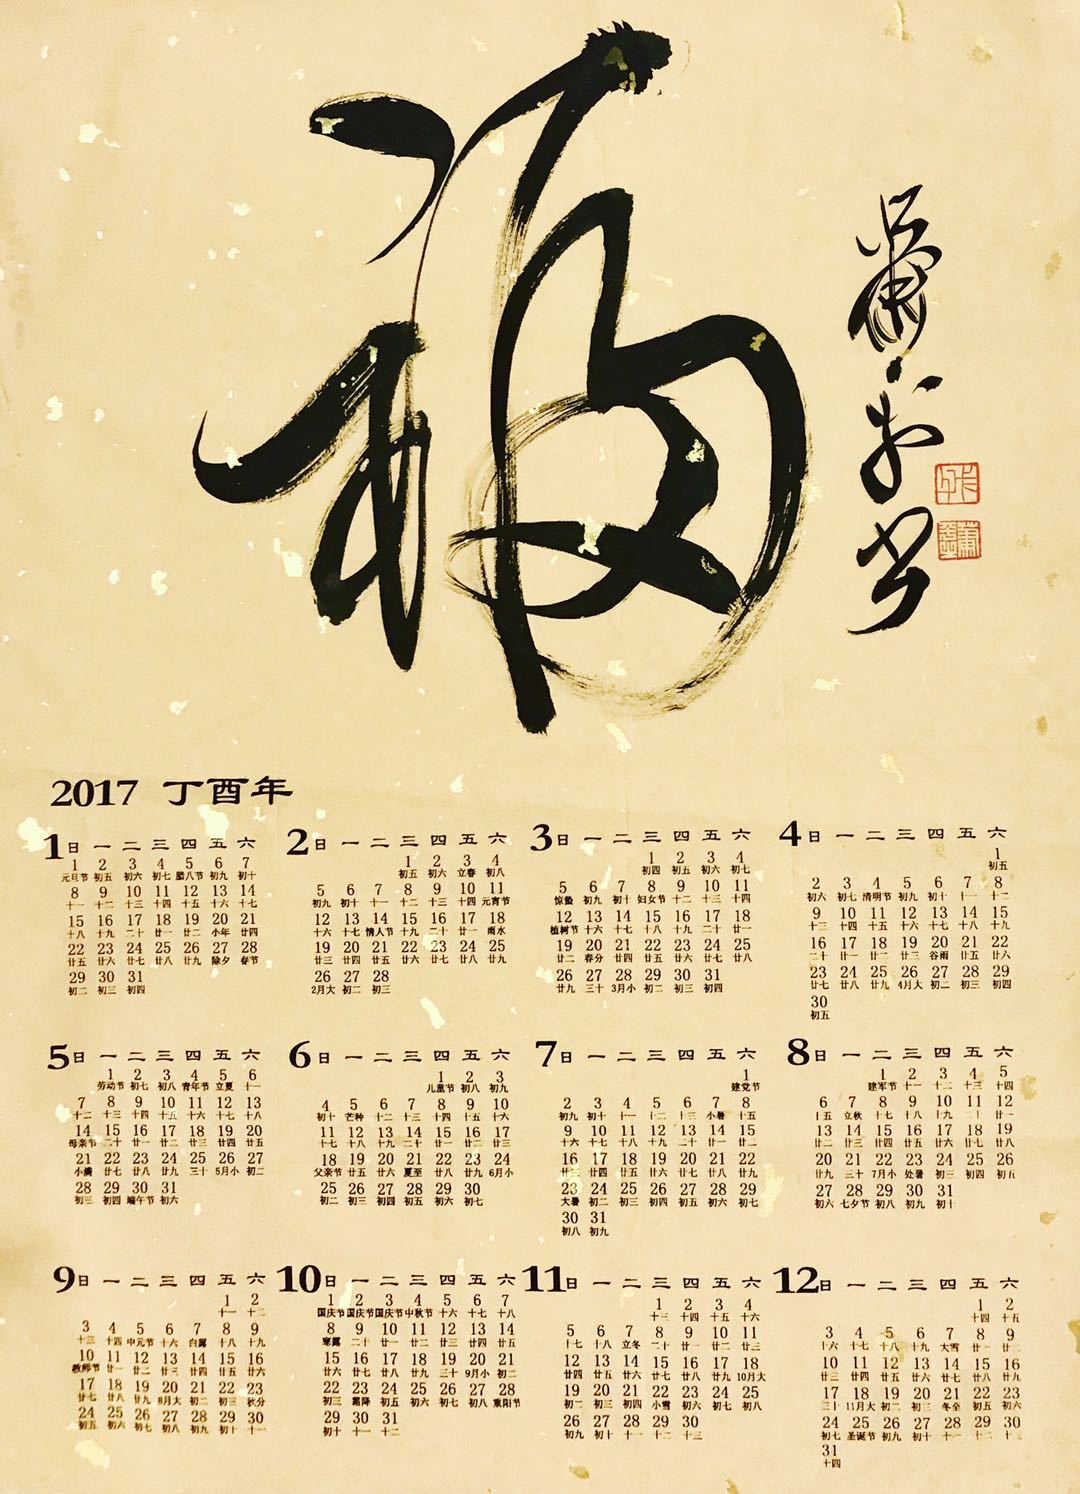 福
2017 丁酉年
1 日 一 二 三 四 五 六
1 2 3 4 5 6 7
元旦节 初五 初六 初七 腊八节 初九 初十
8 9 10 11 12 13 14
十一 十二 十三 十四 十五 十六 十七
15 16 17 18 19 20 21
十八 十九 二十 廿一 廿二 小年 廿四
22 23 24 25 26 27 28
廿五 廿六 廿七 廿八 廿九 除夕 春节
29 30 31
初二 初三 初四
2 日 一 二 三 四 五 六
1 2 3 4
初五 初六 立春 初八
5 6 7 8 9 10 11
初九 初十 十一 十二 十三 十四 元宵节
12 13 14 15 16 17 18
十六 十七 情人节 十九 二十 廿一 雨水
19 20 21 22 23 24 25
廿三 廿四 廿五 廿六 廿七 廿八 廿九
26 27 28
2月大 初二 初三
3 日 一 二 三 四 五 六
1 2 3 4
初四 初五 初六 初七
5 6 7 8 9 10 11
惊蛰 初九 初十 妇女节 十二 十三 十四
12 13 14 15 16 17 18
植树节 十六 十七 十八 十九 二十 廿一
19 20 21 22 23 24 25
廿二 春分 廿四 廿五 廿六 廿七 廿八
26 27 28 29 30 31
廿九 三十 3月小 初二 初三 初四
4 日 一 二 三 四 五 六
1
初五
2 3 4 5 6 7 8
初六 初七 清明节 初九 初十 十一 十二
9 10 11 12 13 14 15
十三 十四 十五 十六 十七 十八 十九
16 17 18 19 20 21 22
二十 廿一 廿二 廿三 谷雨 廿五 廿六
23 24 25 26 27 28 29
廿七 廿八 廿九 4月大 初二 初三 初四
30
初五
5 日 一 二 三 四 五 六
1 2 3 4 5 6
劳动节 初七 初八 青年节 立夏 十一
7 8 9 10 11 12 13
十二 十三 十四 十五 十六 十七 十八
14 15 16 17 18 19 20
母亲节 二十 廿一 廿二 廿三 廿四 廿五
21 22 23 24 25 26 27
小满 廿七 廿八 廿九 三十 5月小 初二
28 29 30 31
初三 初四 端午节 初六
6 日 一 二 三 四 五 六
1 2 3
儿童节 初八 初九
4 5 6 7 8 9 10
初十 芒种 十二 十三 十四 十五 十六
11 12 13 14 15 16 17
十七 十八 十九 二十 廿一 廿二 廿三
18 19 20 21 22 23 24
父亲节 廿五 廿六 夏至 廿八 廿九 6月小
25 26 27 28 29 30
初二 初三 初四 初五 初六 初七
7 日 一 二 三 四 五 六
1
建党节
2 3 4 5 6 7 8
初九 初十 十一 十二 十三 小暑 十五
9 10 11 12 13 14 15
十六 十七 十八 十九 二十 廿一 廿二
16 17 18 19 20 21 22
廿三 廿四 廿五 廿六 廿七 廿八 廿九
23 24 25 26 27 28 29
大暑 初二 初三 初四 初五 初六 初七
30 31
初八 初九
8 日 一 二 三 四 五 六
1 2 3 4 5
建军节 十一 十二 十三 十四
6 7 8 9 10 11 12
十五 立秋 十七 十八 十九 二十 廿一
13 14 15 16 17 18 19
廿二 廿三 廿四 廿五 廿六 廿七 廿八
20 21 22 23 24 25 26
廿九 三十 7月小 处暑 初三 初四 初五
27 28 29 30 31
初六 七夕节 初八 初九 初十
9 日 一 二 三 四 五 六
1 2
十一 十二
3 4 5 6 7 8 9
十三 十四 中元节 十六 白露 十八 十九
10 11 12 13 14 15 16
教师节 廿一 廿二 廿三 廿四 廿五 廿六
17 18 19 20 21 22 23
廿七 廿八 廿九 8月大 初二 初三 秋分
24 25 26 27 28 29 30
初五 初六 初七 初八 初九 初十 十一
10 日 一 二 三 四 五 六
1 2 3 4 5 6 7
国庆节 国庆节 国庆节 中秋节 十六 十七 十八
8 9 10 11 12 13 14
寒露 二十 廿一 廿二 廿三 廿四 廿五
15 16 17 18 19 20 21
廿六 廿七 廿八 廿九 三十 9月小 初二
22 23 24 25 26 27 28
初三 霜降 初五 初六 初七 初八 重阳节
29 30 31
初十 十一 十二
11 日 一 二 三 四 五 六
1 2 3 4
十三 十四 十五 十六
5 6 7 8 9 10 11
十七 十八 立冬 二十 廿一 廿二 廿三
12 13 14 15 16 17 18
廿四 廿五 廿六 廿七 廿八 廿九 10月大
19 20 21 22 23 24 25
初二 初三 初四 小雪 初六 初七 初八
26 27 28 29 30
初九 初十 十一 十二 十三
12 日 一 二 三 四 五 六
1 2
十四 十五
3 4 5 6 7 8 9
十六 十七 十八 十九 大雪 廿一 廿二
10 11 12 13 14 15 16
廿三 廿四 廿五 廿六 廿七 廿八 廿九
17 18 19 20 21 22 23
三十 11月大 初二 初三 冬至 初五 初六
24 25 26 27 28 29 30
初七 圣诞节 初九 初十 十一 十二 十三
31
十四